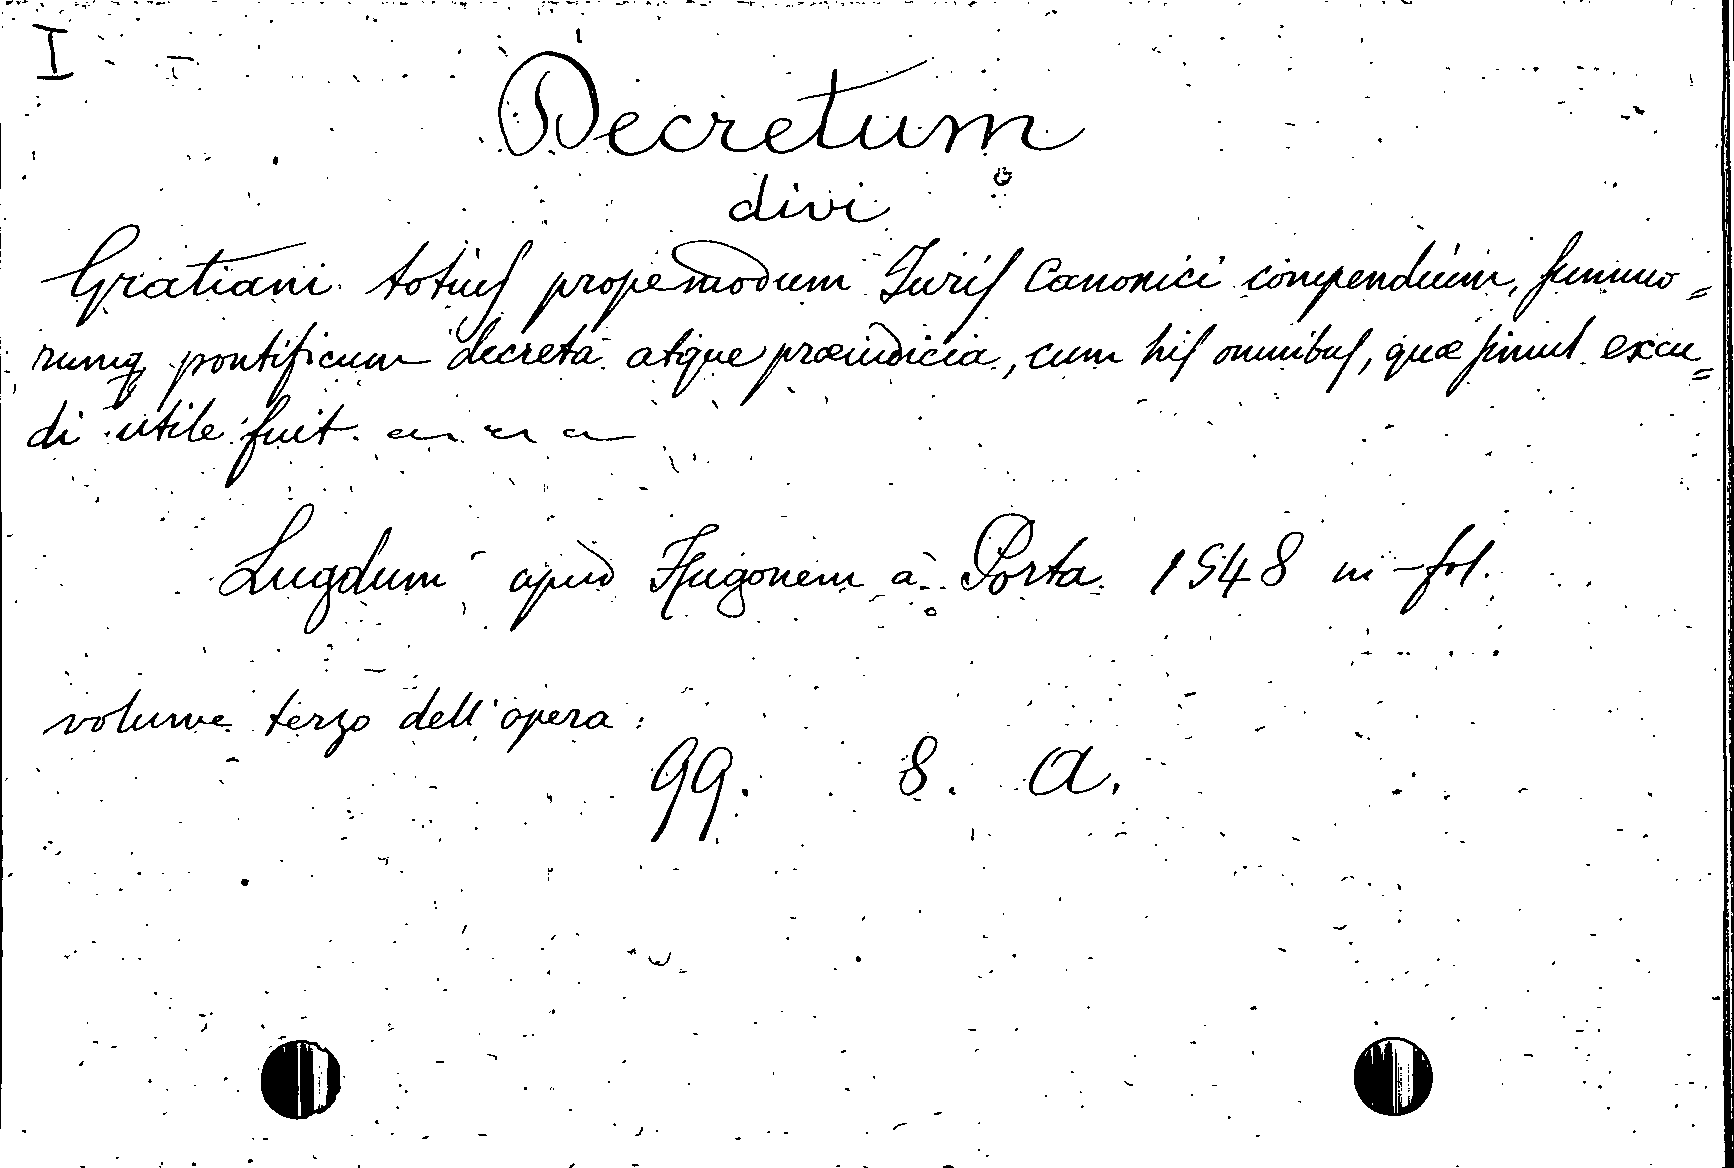 I
Decretum
divi
Gratiani totius propemodum Iuris Canonici compendium, summo=
rumq pontificum decreta atque præiudicia, cum his omnibus, quæ simul excu=
di utile fuit.
Lugduni apud Hugonem à Porta 1548 in-fol.
volume terzo dell'opera:
99. 8. A.